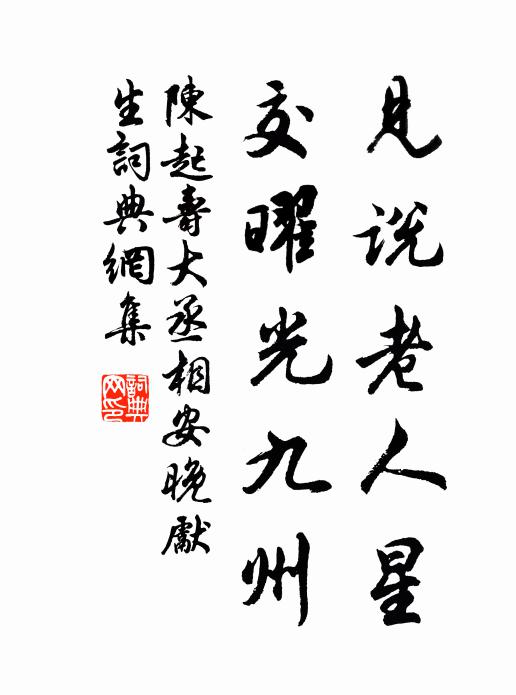 見説老人星
交曜光九州
陳起壽大丞相安晚獻
生詞典網集
詞典网印